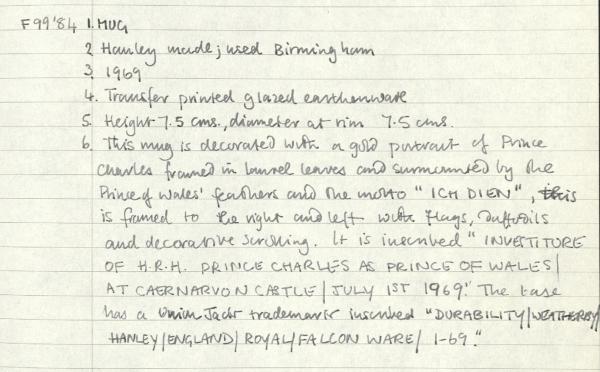 F99'84 1. MUG
2 Hanley made; used Birmingham
3. 1969
4. Transfer printed glazed earthenware
5. Height 7.5 cms., diameter at rim 7.5 cms.
6. This mug is decorated with a gold portrait of Prince
Charles framed in laurel leaves and surmounted by the
Prince of Wales' feathers and the motto "ICH DIEN", this
is framed to the right and left with flags, daffodils
and decorative scrolling. It is inscribed "INVESTITURE
OF H.R.H. PRINCE CHARLES AS PRINCE OF WALES/
AT CAERNARVON CASTLE/JULY 1ST 1969." The base
has a Union Jack trademark inscribed "DURABILITY/WEATHERBY/
HANLEY/ENGLAND/ROYAL/FALCON WARE/1-69."